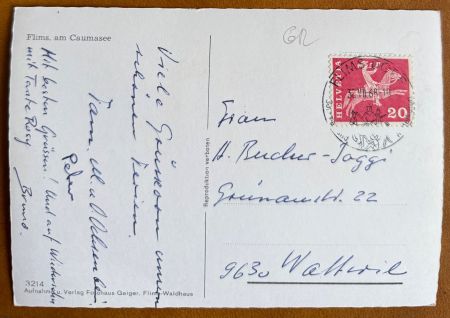 Flims, am Caumasee
Viele Grüsse von unseren
schönen Ferien.
Fam.
Peter
Mit besten Grüssen. Und auf Wiedersehen
mit Tante Rosy
Bruno.
3214
Aufnahme u. Verlag Fotohaus Geiger, Flims-Waldhaus
Reproduktion verboten
GR
HELVETIA
20
Frau
A. Bucher-Joggi
Grünaustr. 22
9630 Wattwil